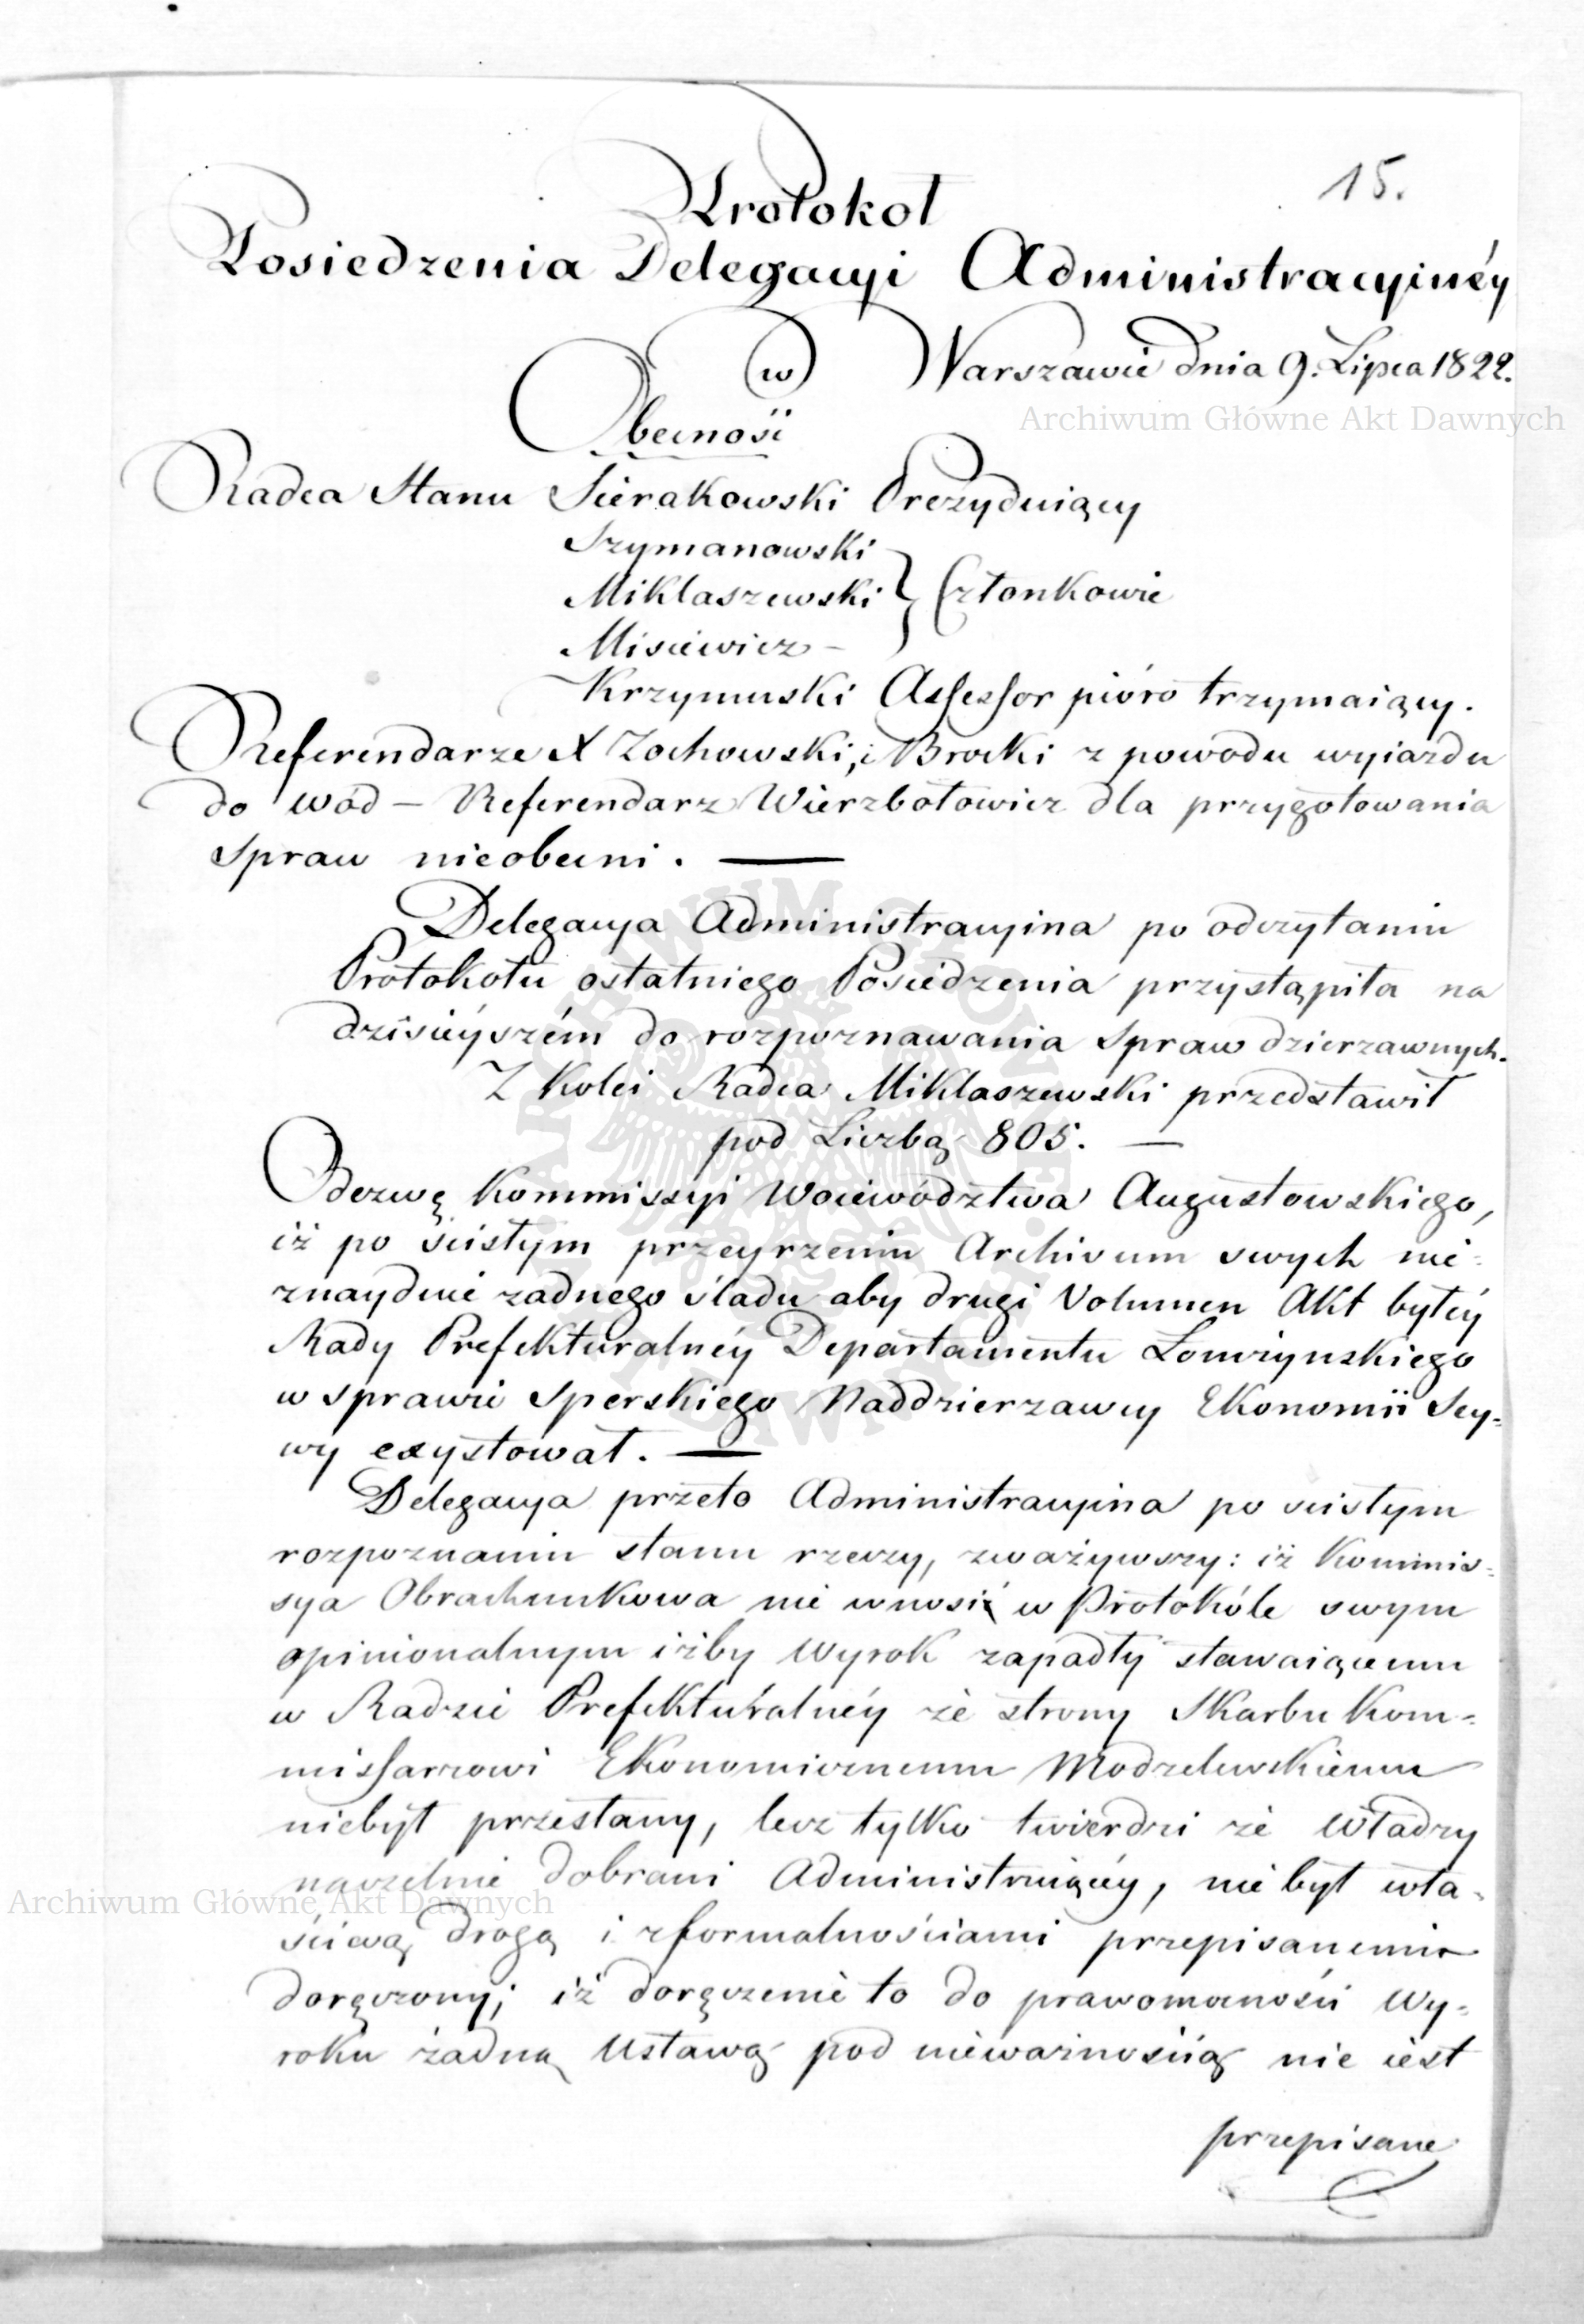 15.
Protokoł
Posiedzenia Delegacyi Administracyinéy
w Warszawie dnia 9. Lipca 1822.
Archiwum Główne Akt Dawnych
Obecności
Radca Stanu Sierakowski Prezyduiący
Szymanowski
Miklaszewski } Członkowie
Misiewicz –
Krzymuski Assessor pióro trzymaiący.
Referendarze X Zochowski, i Brocki z powodu wyiazdu
do wód – Referendarz Wierzbołowicz dla przygotowania
Spraw nieobecni. —
Delegacya Administracyina po odczytaniu
Protokołu ostatniego Posiedzenia przystąpiła na
dzisieyszém do rozpoznawania Spraw dzierzawnych.
Z Kolei Radca Miklaszewski przedstawił
pod Liczbą 805. —
Odezwę Kommissyi Woiewództwa Augustowskiego,
iż po ścisłym przeyrzeniu Archivum swych nie-
znayduie zadnego śladu aby drugi Volumen Akt byłéy
Rady Prefekturalnéy Departamentu Łomżynskiego
w sprawie Sperskiego Naddzierzawcy Ekonomii Sey-
wy exystował. —
Delegacya przeto Administracyina po scisłym
rozpoznaniu stanu rzeczy, zważywszy: iż Kommis-
sya Obrachunkowa nie wnosi w Protokóle swym
opinionalnym iżby Wyrok zapadły stawaiącemu
w Radzie Prefekturalnéy ze strony Skarbu Kom-
missarzowi Ekonomicznemu Modzelewskiemu
niebył przesłany, lecz tylko twierdzi że Władzy
naczelnie dobrami Administruiącéy, nie był wła-
Archiwum Główne Akt Dawnych
ściwą drogą i zformalnościami przepisanemi
doręczony; iż doręczenie to do prawomocności Wy-
roku żadną Ustawą pod nieważnością nie iest
przepisane